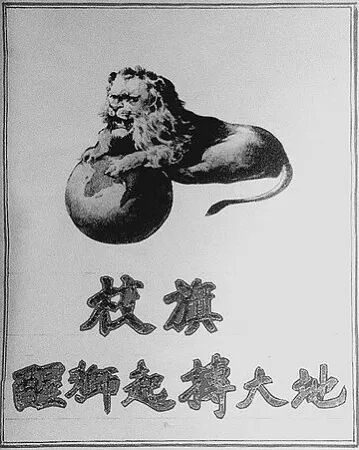 校旗
醒獅起搏大地